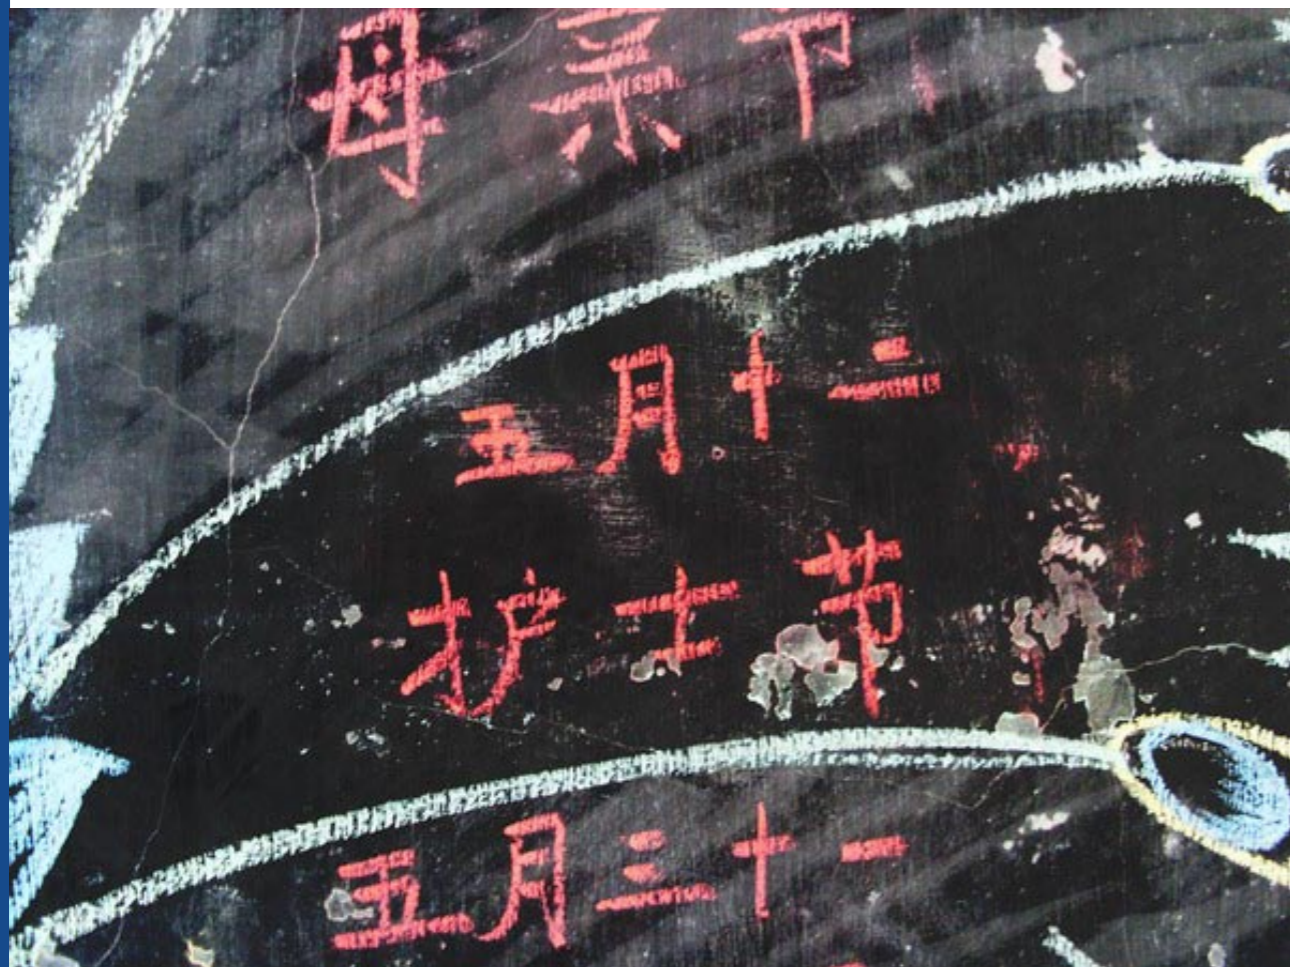 母亲节
五月十二
护士节
五月三十一